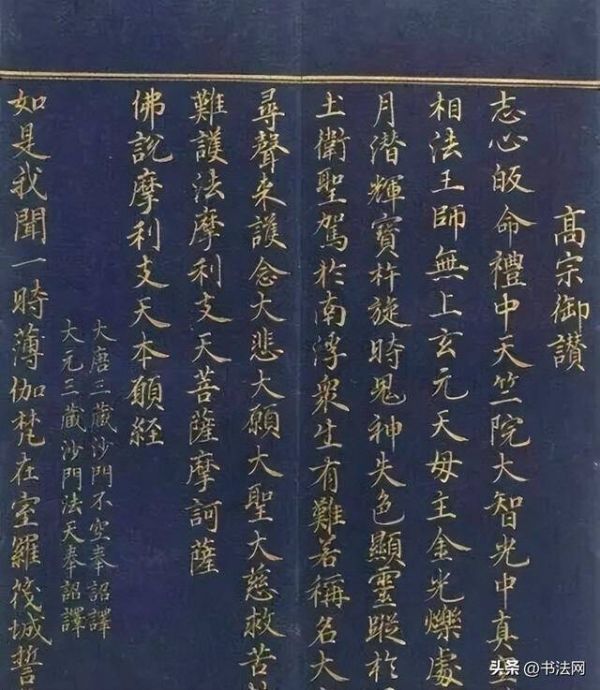 高宗御讃
志心皈命禮中天竺院大智光中真
相法王師無上玄元天母主金光爍處
月潜輝寳杵旋時鬼神失色顯靈蹤於
土衛聖駕於南浮衆生有難若稱名大
尋聲来護念大悲大願大聖大慈救苦
難護法摩利支天菩薩摩訶薩
佛説摩利支天本願経
大唐三藏沙門不空奉詔譯
大元三藏沙門法天奉詔譯
如是我聞一時薄伽梵在室羅筏城誓
头条 @书法网